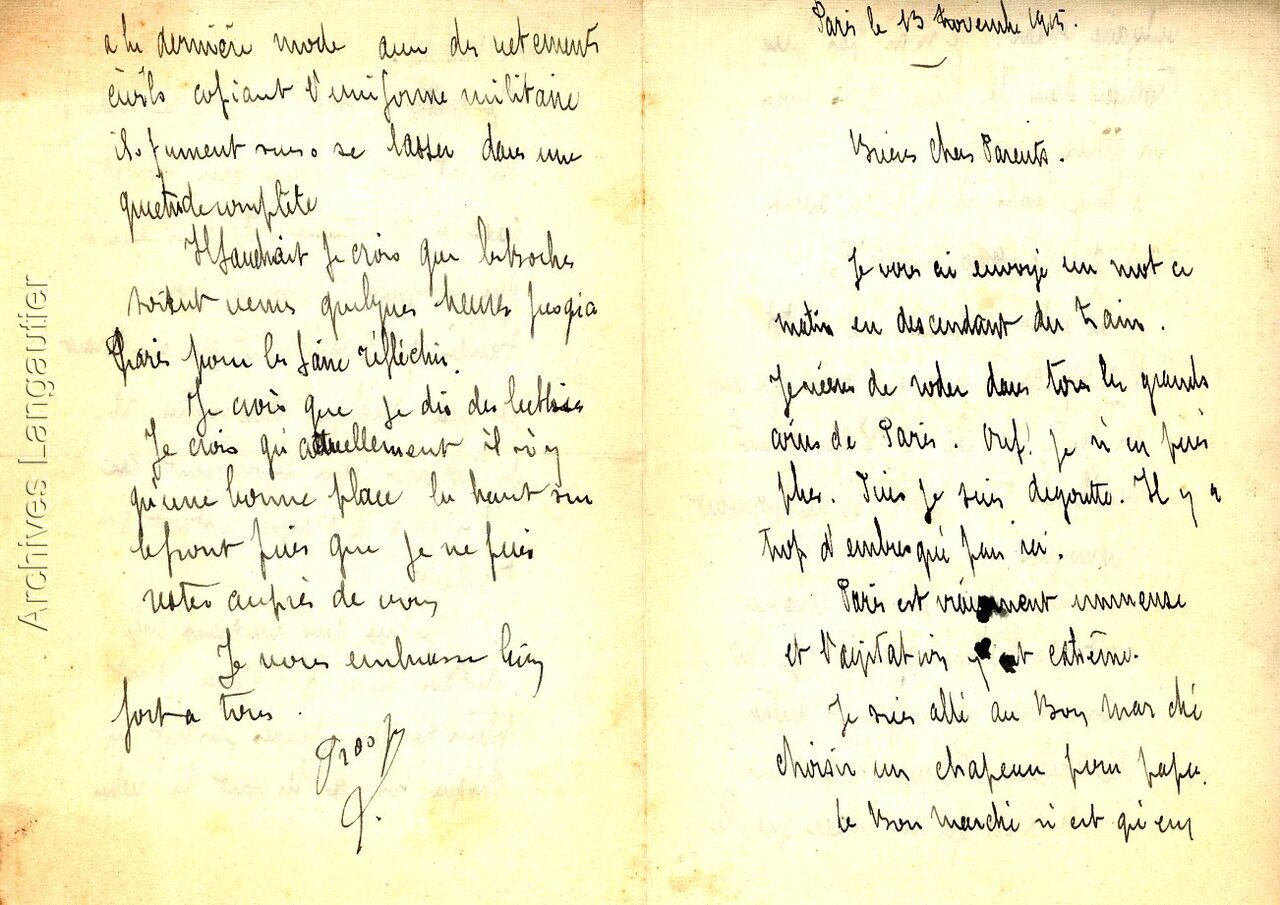 Paris le 13 Novembre 1915.
Biens Chers Parents.
Je vous ai envoyé un mot ce
matin en descendant du train.
Je viens de roder dans tous les grands
coins de Paris. Ouf! Je n'en puis
plus. Puis je suis degoutté. Il y a
trop d'embusqué par ici.
Paris est vraiment immense
et l'agitation y est extrême.
Je suis allé au Bon marché
choisir un chapeau pour papa.
Le Bon Marché n'est qu'en
a la dernière mode avec des vetements
civils copiant l'uniforme militaire
ils fument sans se lasser dans une
quiétude complète
Il faudrait je crois que les boches
soient venus quelques heures jusqu'a
Paris pour les faire réfléchir.
Je crois que je dis des betises
Je crois qu'actuellement il n'y
qu'une bonne place la haut sur
le front puis que je ne puis
rester auprès de vous
Je vous embrasse bien
fort a tous.
Archives Langautier